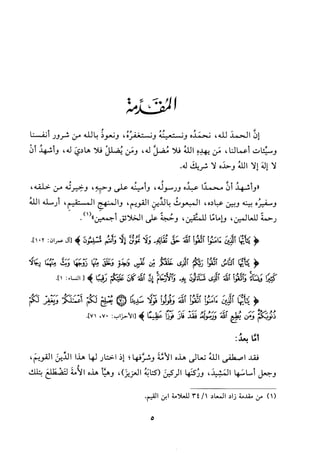 المقدمة
إنَّ الحمدَ لله، نحمَدُه ونستعينُه ونستغفرُه، ونعوذُ بالله من شرور أنفسنا
وسيِّئات أعمالنا، مَن يهدِهِ اللهُ فلا مُضلَّ له، ومَن يُضلل فلا هاديَ له، وأشهدُ أنْ
لا إلهَ إلا اللهُ وحدَه لا شريكَ له.
«وأشهدُ أنَّ محمدًا عبدُه ورسولُه، وأمينُه على وحيِهِ، وخِيرتُه من خلقه،
وسفيرُه بينه وبين عباده، المبعوثُ بالدِّين القويم، والمنهج المستقيم، أرسله اللهُ
رحمةً للعالمين، وإمامًا للمتَّقين، وحُجةً على الخلائق أجمعين»(١).
﴿ يَٰٓأَيُّهَا ٱلَّذِينَ ءَامَنُوا۟ ٱتَّقُوا۟ ٱللَّهَ حَقَّ تُقَاتِهِۦ وَلَا تَمُوتُنَّ إِلَّا وَأَنتُم مُّسْلِمُونَ ﴾ [آل عمران: ١٠٢].
﴿ يَٰٓأَيُّهَا ٱلنَّاسُ ٱتَّقُوا۟ رَبَّكُمُ ٱلَّذِى خَلَقَكُم مِّن نَّفْسٍ وَٰحِدَةٍ وَخَلَقَ مِنْهَا زَوْجَهَا وَبَثَّ مِنْهُمَا رِجَالًا
كَثِيرًا وَنِسَآءً وَٱتَّقُوا۟ ٱللَّهَ ٱلَّذِى تَسَآءَلُونَ بِهِۦ وَٱلْأَرْحَامَ إِنَّ ٱللَّهَ كَانَ عَلَيْكُمْ رَقِيبًا ﴾ [النساء: ١].
﴿ يَٰٓأَيُّهَا ٱلَّذِينَ ءَامَنُوا۟ ٱتَّقُوا۟ ٱللَّهَ وَقُولُوا۟ قَوْلًا سَدِيدًا ۝ يُصْلِحْ لَكُمْ أَعْمَٰلَكُمْ وَيَغْفِرْ لَكُمْ
ذُنُوبَكُمْ وَمَن يُطِعِ ٱللَّهَ وَرَسُولَهُۥ فَقَدْ فَازَ فَوْزًا عَظِيمًا ﴾ [الأحزاب: ٧٠، ٧١].
أمَّا بعدُ:
فقد اصطفى اللهُ تعالى هذه الأمَّةَ وشرَّفها؛ إذ اختار لها هذا الدِّينَ القويمَ،
وجعل أساسَها المَشِيدَ، ورُكنَها الركينَ (كتابَهُ العزيزَ)، وهيَّأ هذه الأمةَ لتضطلعَ بتلك
(١) من مقدمة زاد المعاد ٣٤/١ للعلامة ابن القيم.
٥